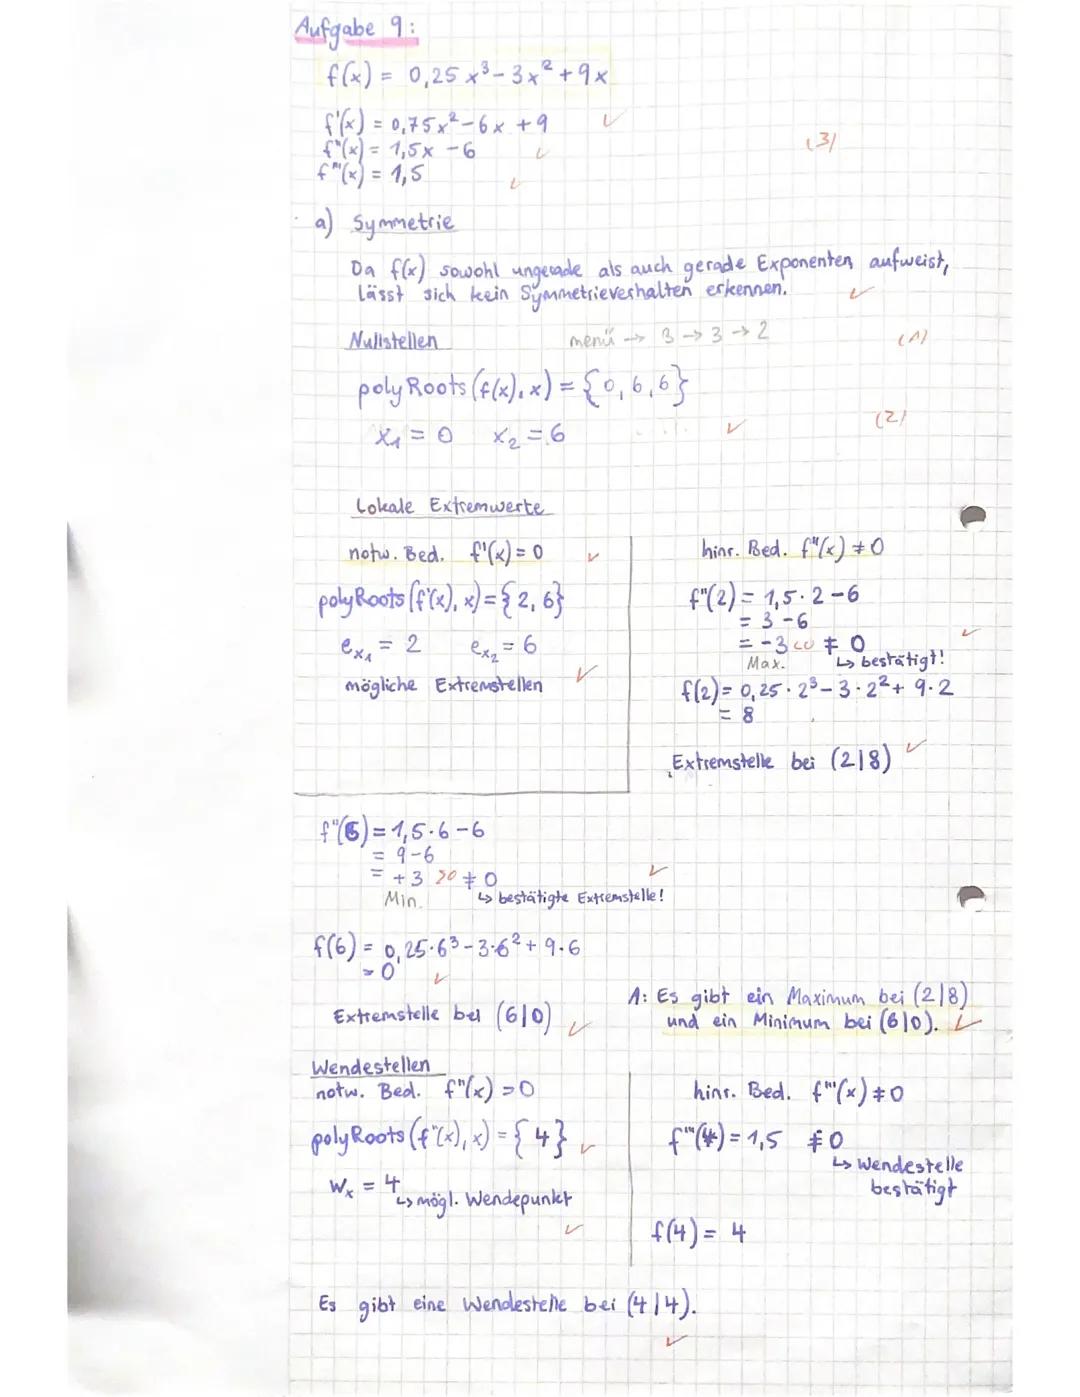 Aufgabe 9:
f(x) = 0,25x³ - 3x² + 9x
f'(x) = 0,75x² - 6x + 9 ✓
f"(x) = 1,5x - 6 ✓
f"'(x) = 1,5 ✓
(3)
a) Symmetrie
Da f(x) sowohl ungerade als auch gerade Exponenten aufweist,
lässt sich kein Symmetrieverhalten erkennen. ✓
(1)
Nullstellen menü → 3 → 3 → 2
polyRoots(f(x), x) = {0, 6, 6}
x₁ = 0 x₂ = 6 ✓
(2)
Lokale Extremwerte
notw. Bed. f'(x) = 0 ✓
polyRoots(f'(x), x) = {2, 6}
eₓ₁ = 2 eₓ₂ = 6
mögliche Extremstellen ✓
hinr. Bed. f"(x) ≠ 0
f"(2) = 1,5 · 2 - 6
= 3 - 6
= -3 <0 ≠ 0 ✓
Max. ↳ bestätigt!
f(2) = 0,25 · 2³ - 3 · 2² + 9 · 2
= 8
Extremstelle bei (2|8) ✓
f"(6) = 1,5 · 6 - 6
= 9 - 6
= +3 >0 ≠ 0 ✓
Min. ↳ bestätigte Extremstelle!
f(6) = 0,25 · 6³ - 3 · 6² + 9 · 6
= 0 ✓
Extremstelle bei (6|0) ✓
A: Es gibt ein Maximum bei (2|8)
und ein Minimum bei (6|0). ✓
Wendestellen
notw. Bed. f"(x) = 0
polyRoots(f"(x), x) = {4} ✓
Wₓ = 4
↳ mögl. Wendepunkt ✓
hinr. Bed. f"'(x) ≠ 0
f"'(4) = 1,5 ≠ 0
↳ Wendestelle
bestätigt
f(4) = 4
Es gibt eine Wendestelle bei (4|4). ✓